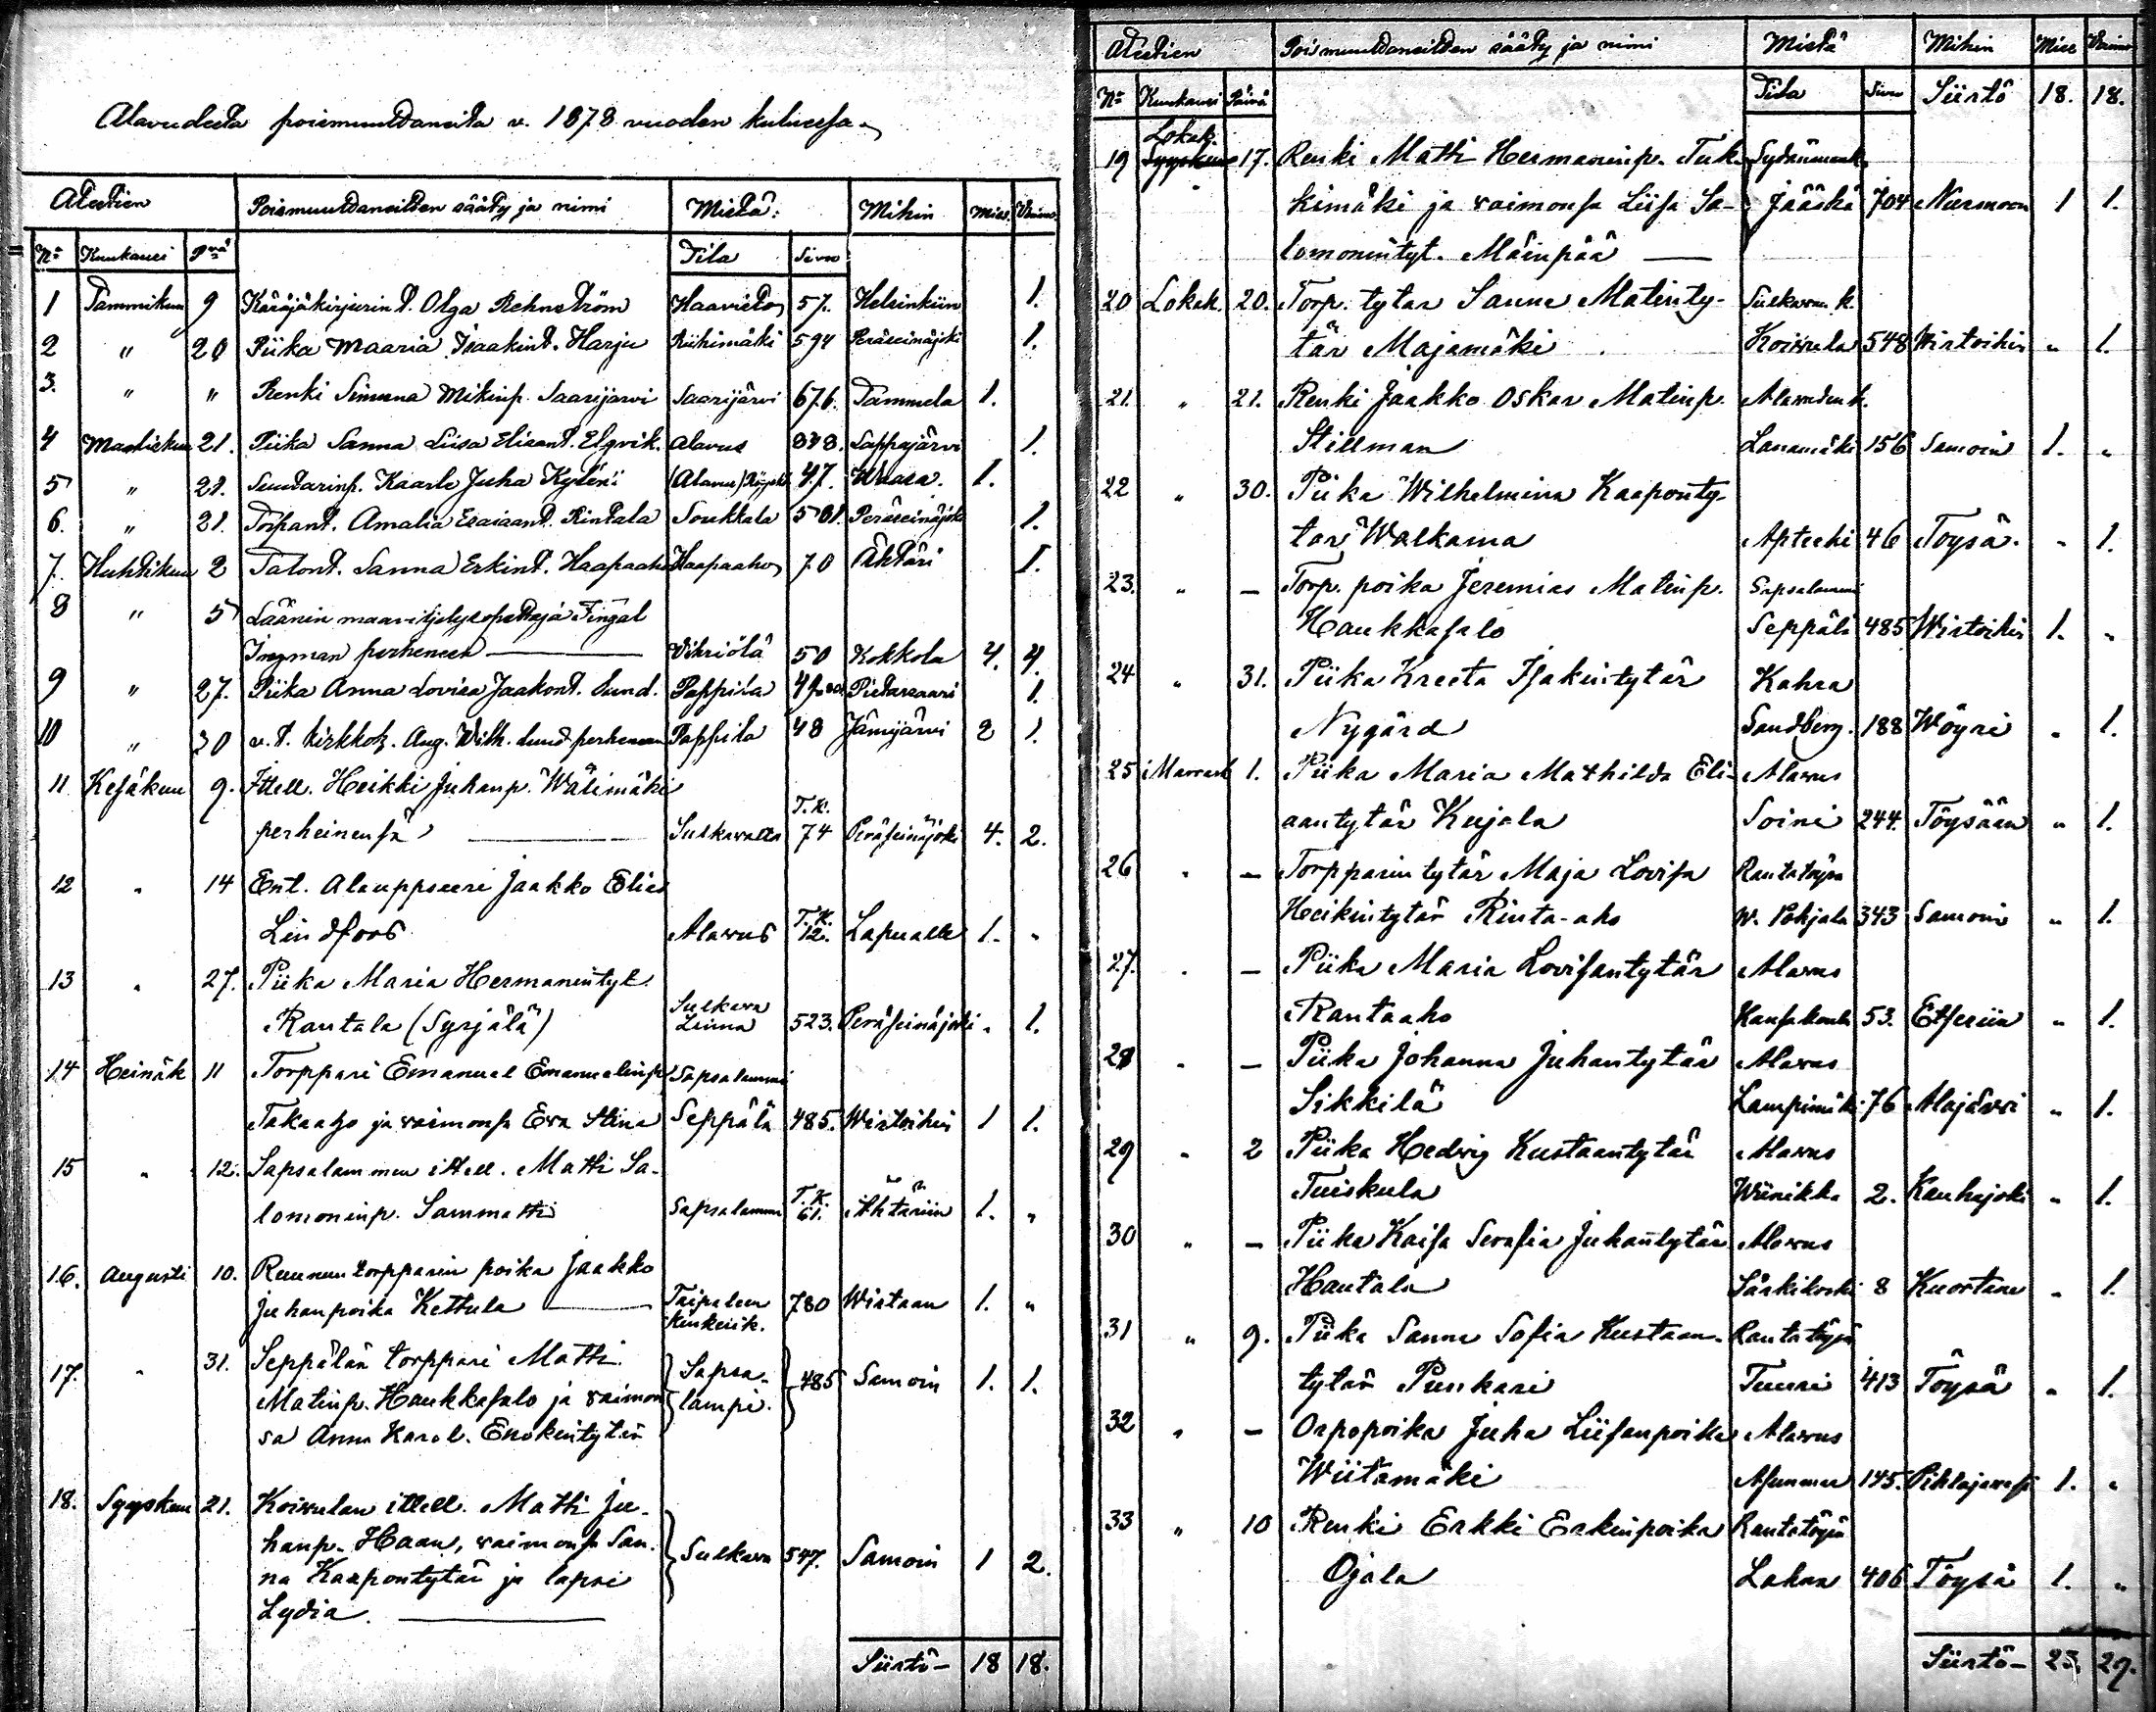 Alavudesta poismuuttaneita v. 1878 vuoden kuluessa.
Attestien Poismuuttaneitten sääty ja nimi Mistä: Mihin Mies Vaimo
No Kuukausi Pvä Tila Sivu
1 Tammikuu 9 Käräjäkirjurint. Olga Rehnström Haavisto 57. Helsinkiin 1.
2 " 20 Piika Maaria Isaakint. Harju Riihimäki 594 Peräseinäjoki 1.
3. " " Renki Simuna Mikinp. Saarijärvi Saarijärvi 676. Tammela 1.
4 Maaliskuu 21. Piika Sanna Liisa Elisant. Elgvik. Alavus 338. Lappajärvi 1.
5 " 21. Suutarinp. Kaarle Juha Kylén (Alavus) 47. Waasa. 1.
6. " 21. Torpant. Amalia Esaiaant. Rintala Soukkala 501. Peräseinäjoki 1.
7. Huhtikuu 2 Talont. Sanna Erkint. Haapaaho Haapaaho 70 Ähtäri 1.
8 " 5 Läänin maanviljelysopettaja Fingal
Ingman perheneen Vihriölä 50 Kokkola 4. 4.
9 " 27. Piika Anna Lovisa Jaakont. Sund. Pappila 49 Pietarsaari 1.
10 " 30 v.t. kirkkoh. Aug. Wilh. Lund perheneen Pappila 48 Jämijärvi 2 1.
11 Kesäkuu 9. Ittell. Heikki Juhanp. Wälimäki
perheinensä Sulkavalta T.K. 74 Peräseinäjoki 4. 2.
12 " 14 Ent. Alauppseeri Jaakko Elias
Lindfors Alavus T.K. 12. Lapualle 1. "
13 " 27. Piika Maria Hermanintyt.
Rantala (Syrjälä) Sulkava Linna 523. Peräseinäjoki " 1.
14 Heinäk 11 Torppari Emanuel Emanuelinp Sapsalammi
Takaaho ja vaimonsa Eva Stina Seppälä 485. Wirtoihin 1 1.
15 " 12. Sapsalammen ittell. Matti Sa-
lomoninp. Sammatti Sapsalammi T.K. 61. Ähtäriin 1. "
16. Augusti 10. Ruunun torpparin poika Jaakko
Juhanpoika Kettula Taipaleen kinkerik. 780 Wirtaan 1. "
17. " 31. Seppälän torppari Matti
Matinp. Haukkasalo ja vaimon Sapsa-lampi. 485 Samoin 1. 1.
sa Anna Karol. Enokintytär
18. Syyskuu 21. Koivulan ittell. Matti Ju-
hanp. Haan, vaimonsa San-
na Kaapontytär ja lapsi Sulkava 547. Samoin 1 2.
Lydia.
Siirtö- 18 18.
Attestien Poismuuttaneitten sääty ja nimi Mistä Mihin Mies Vaimo
No Kuukausi Päivä Tila Sivu Siirtö 18. 18.
Lokak.
19 Syyskuu 17. Renki Matti Hermaninp. Tuk- Sydänmaak.
kimäki ja vaimonsa Liisa Sa- Jääskä 704 Nurmoon 1 1.
lomonintyt. Mäinpää
20 Lokak. 20. Torp. tytar Sanna Matinty- Sulkavan k.
tär Majamäki Koivula 548 Wirtoihin " 1.
21. " 21. Renki Jaakko Oskar Matinp. Alavuden k.
Stillman Lanamäki 156 Samoin 1. "
22 " 30. Piika Wilhelmina Kaaponty-
tär Walkama Apteeki 46 Töysä. " 1.
23. " - Torp. poika Jeremias Matinp. Sapsalammi
Haukkasalo Seppälä 485 Wirtoihin 1. "
24 " 31. Piika Kreeta Isakintytär Kahra
Nygård Sandberg. 188 Wöyri " 1.
25 Marrask 1. Piika Maria Mathilda Eli- Alavus
aantytär Kujala Soini 244. Töysään " 1.
26 " - Torpparin tytär Maja Lovisa Rantatöysä
Heikintytär Rinta-aho W. Pohjala 343 Samoin " 1.
27. " - Piika Maria Lovisantytär Alavus
Rantaaho 53. Etseriin " 1.
28 " - Piika Johanna Juhantytär Alavus
Sikkilä Lampimäki 76 Alajärvi " 1.
29 " 2 Piika Hedvig Kustaantytär Alavus
Tuiskula Wiinikka 2. Kauhajoki " 1.
30 " - Piika Kaisa Serafia Juhantytär Alavus
Hautala Särkikoski 8 Kuortane " 1.
31 " 9. Piika Sanna Sofia Kustaan- Rantatöysä
tytär Punkari Tuuri 413 Töysä " 1.
32 " - Orpopoika Juha Liisanpoika Alavus
Wiitamäki Asunmaa 145. Pihlajavesi 1. "
33 " 10 Renki Erkki Erkinpoika Rantatöysä
Ojala Lahna 406 Töysä 1. "
Siirtö- 23. 29.